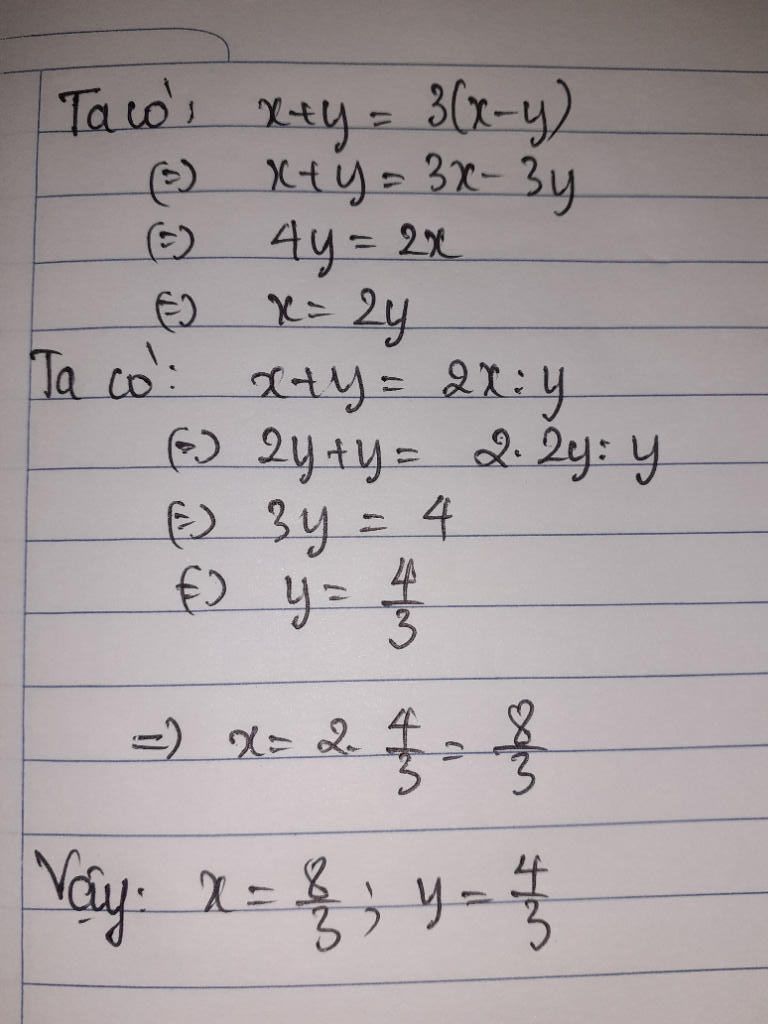 Ta có: x+y = 3(x-y)
(=) x+y = 3x - 3y
(=) 4y = 2x
(=) x = 2y
Ta có: x+y = 2x : y
(=) 2y+y = 2. 2y : y
(=) 3y = 4
(=) y = 4/3
=) x = 2. 4/3 = 8/3
Vậy: x = 8/3 ; y = 4/3